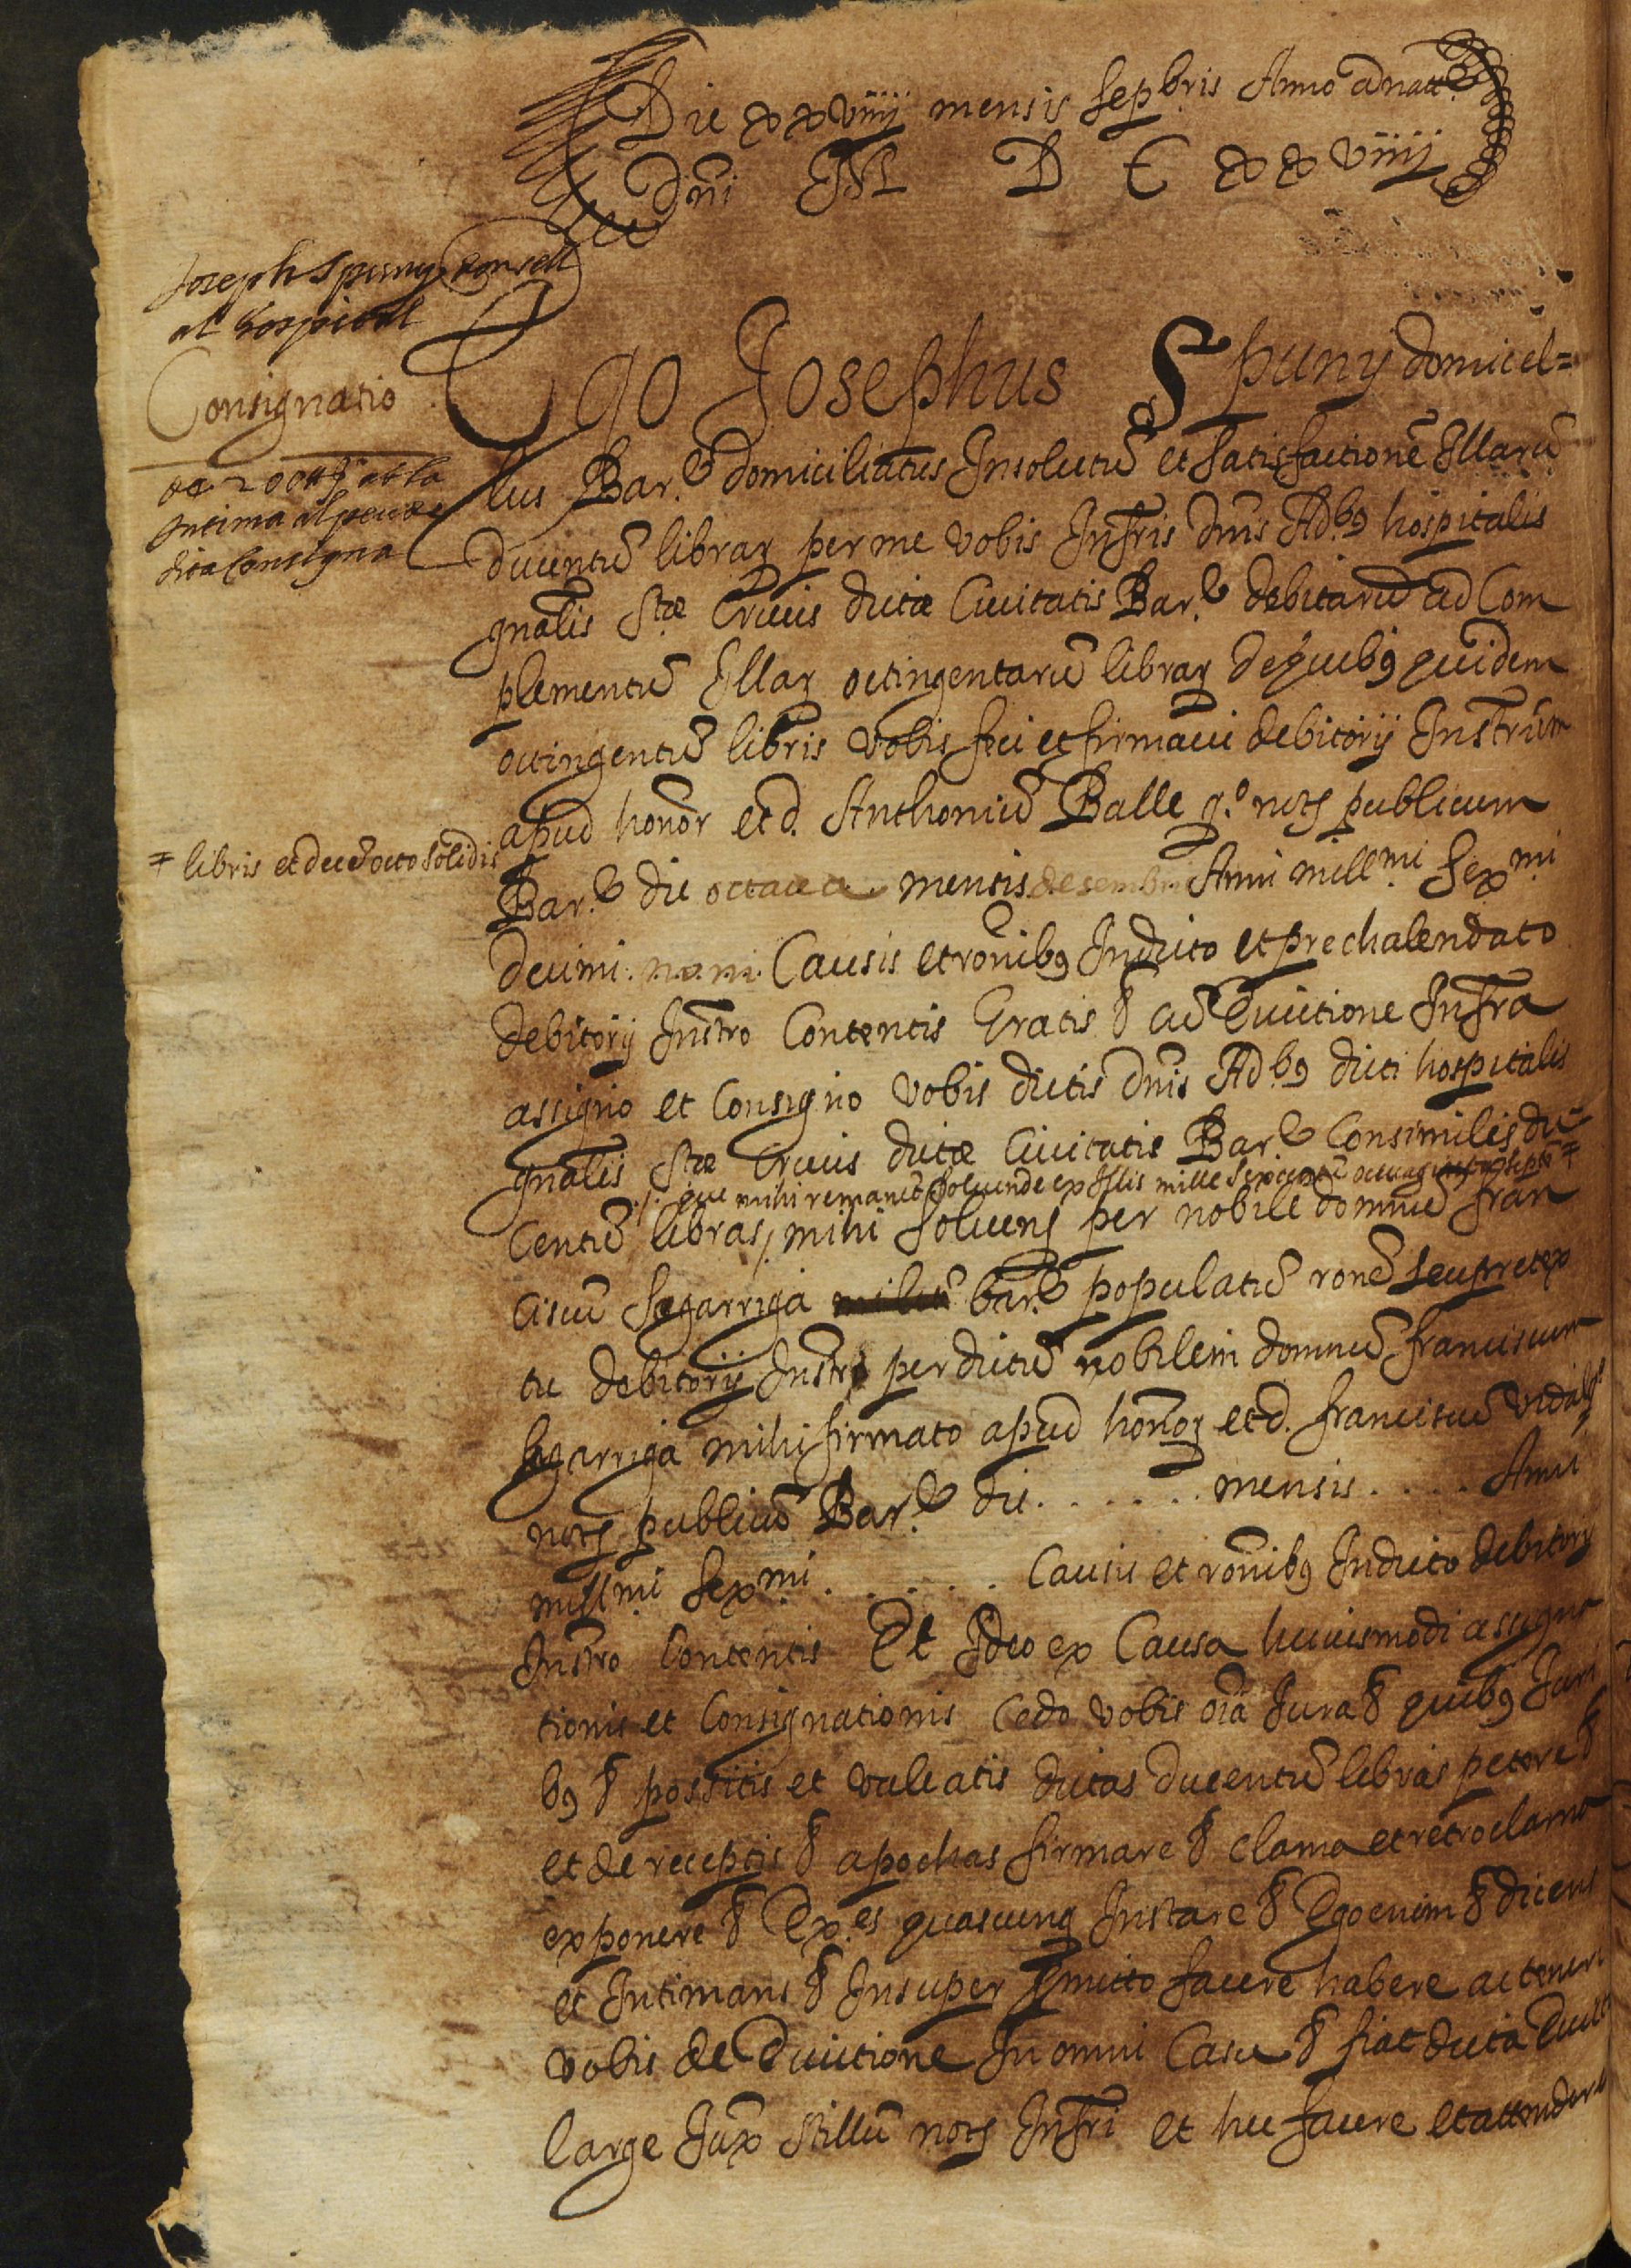 Die xxviiij mensis sep.bris Anno a nat.e
Dñi M D C xxviiij
Joseph Spuny donsell
al hospital
Consignatio
de 200 ll ab la
intima al peu de
dita consigna
Ego Josephus Spuny domicel=
lus Bar.e domiciliatus Insolutũ et satisfactionẽ Illarũ
ducentũ librar per me vobis Infr̃is Dñis Ad.bꝯ hospitalis
gñalis Stæ Crucis dictæ Ciuitatis Bar.e debitarũ ad Com
plementũ Illar octingentarũ librar de quibꝯ quidem
octingentũ libris vobis feci et firmaui debitorij Instrũm
apud honor et d. Anthoniũ Balle q.o notr publicum
Bar.e die octaua mensis desembris Anni mill.mi sex.mi
≠ libris et decẽ octo solidis
decimi noni Causis et rõnibꝯ Indicto et prechalendato
debitorij Instro Contentis Gratis & Cũ Euictione Infra
assigno et Consigno vobis dictis dñis Ad.bꝯ dicti hospitalis
gñalis Stæ Crucis dictæ Ciuitatis Bar.e Consimiles du
./. que mihi remanẽt soluende ex Illis mille sexcentũ octuaginta septẽ ≠
Centũ libras/. mihi soluenꝯ per nobile domnũ fran
ciscũ Segarriga bar.e populatũ ronẽ seu pretex
tu debitorij Instro per dictũ nobilem domnũ franciscum
segarriga mihi firmato apud honor et d. franciscũ vidal q.o
notr publicũ Bar.e die . . . . . . mensis . . . . Anni
mill.mi sex.mi . . . . . . Causis et rõnibꝯ Indicto debitorij
Instro Contentis Et Ideo ex Causa huiusmodi assigna
tionis et Consignationis Cedo vobis oĩa Jura & quibꝯ Juri
bꝯ & possitis et valeatis dictas ducentũ libras petere &
et de receptis & apochas firmare & clama et retroclama
exponere & Ex.es quascunq Instare & Ego enim & dicens
et Intimans & Insuper ꝓmitto facere habere ac tenere
vobis de Euictione In omni Casu & fiat dicta Euict
large Jux̃ stillũ notr Infr̃i et hec facere et attendere